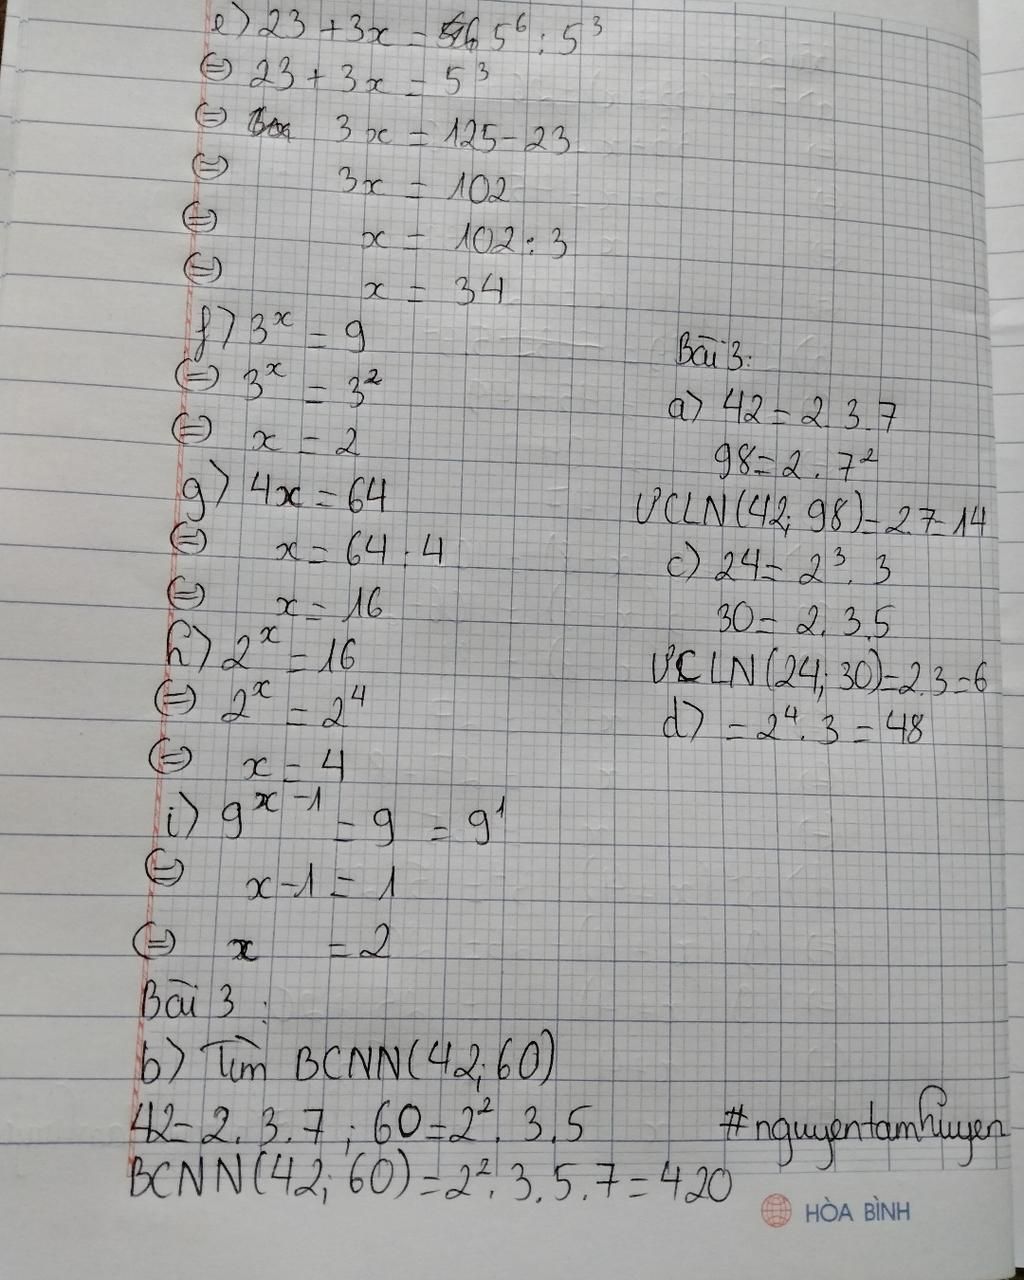 e) 23 + 3x = 5⁶ : 5³
⇔ 23 + 3x = 5³
⇔ 3x = 125 - 23
⇔ 3x = 102
⇔ x = 102 : 3
⇔ x = 34
f) 3ˣ = 9
⇔ 3ˣ = 3²
⇔ x = 2
g) 4x = 64
⇔ x = 64 : 4
⇔ x = 16
h) 2ˣ = 16
⇔ 2ˣ = 2⁴
⇔ x = 4
i) 9ˣ⁻¹ = 9 = 9¹
⇔ x - 1 = 1
⇔ x = 2
Bài 3:
a) 42 = 2.3.7
98 = 2.7²
ƯCLN(42; 98) = 2.7 = 14
c) 24 = 2³.3
30 = 2.3.5
ƯCLN(24; 30) = 2.3 = 6
d) = 2⁴.3 = 48
Bài 3:
b) Tìm BCNN(42; 60)
42 = 2.3.7 ; 60 = 2².3.5
BCNN(42; 60) = 2².3.5.7 = 420
#nguyentamhuyen
HÒA BÌNH